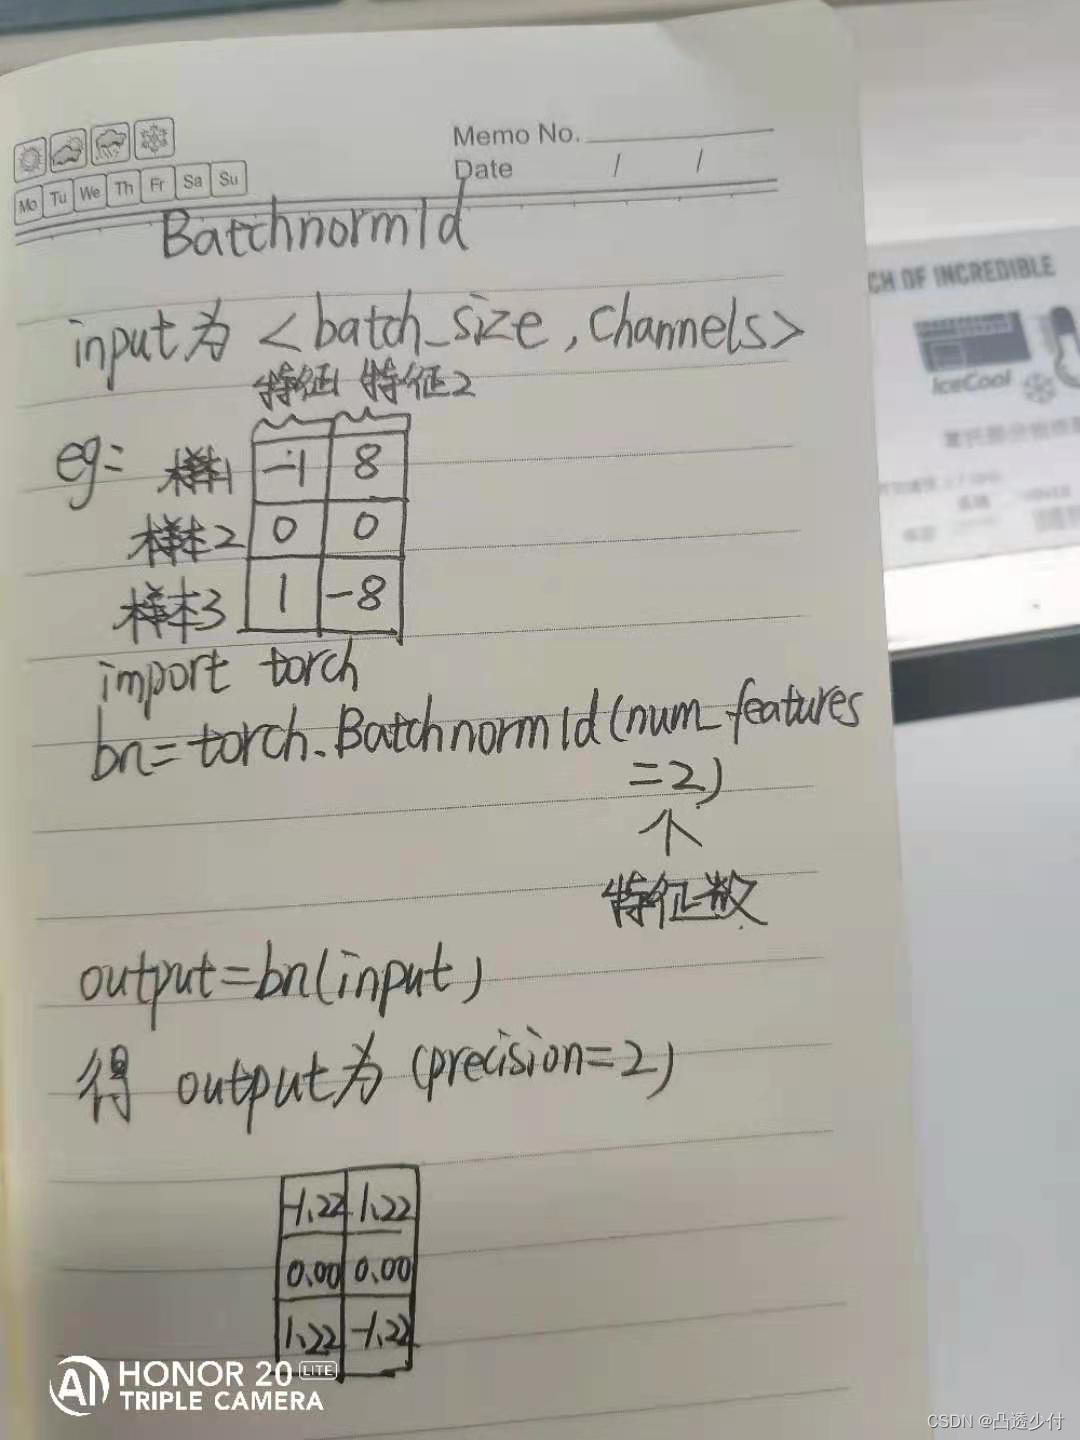 Memo No.
Date / /
Mo Tu We Th Fr Sa Su
Batchnorm1d
input为 <batch_size, Channels>
特征1 特征2
eg: 样本1 -1 8
样本2 0 0
样本3 1 -8
import torch
bn=torch.Batchnorm1d(num_features
=2)
特征数
output=bn(input)
得 output为 (precision=2)
-1.22 1.22
0.00 0.00
1.22 -1.22
CH OF INCREDIBLE
IceCool
HONOR 20 LITE
TRIPLE CAMERA
CSDN @凸透少付